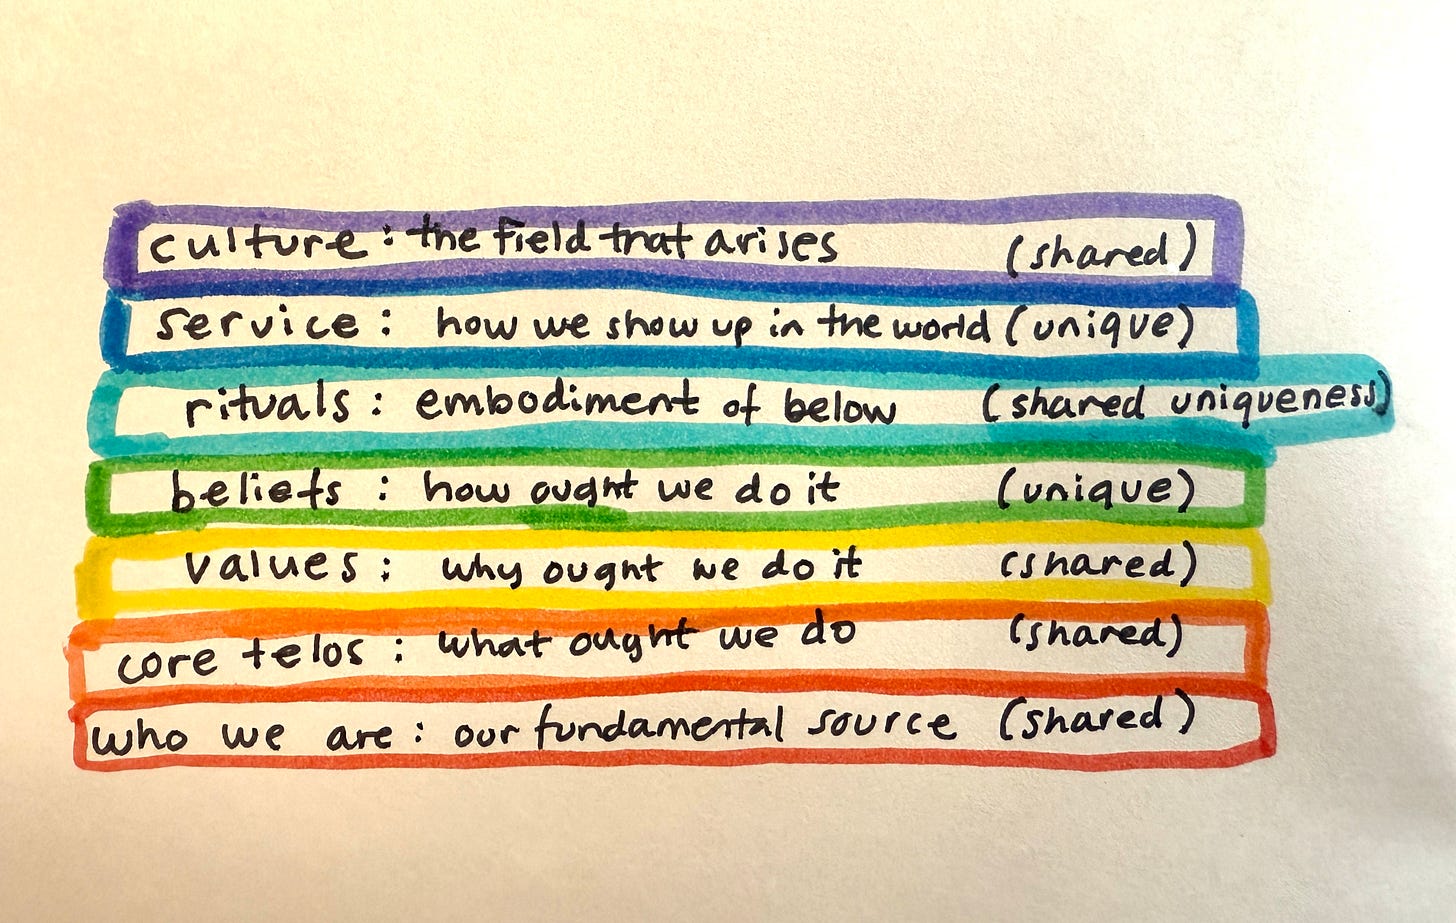 culture : the field that arises (shared)
service : how we show up in the world (unique)
rituals : embodiment of below (shared uniqueness)
beliefs : how ought we do it (unique)
values : why ought we do it (shared)
core telos : what ought we do (shared)
who we are : our fundamental source (shared)